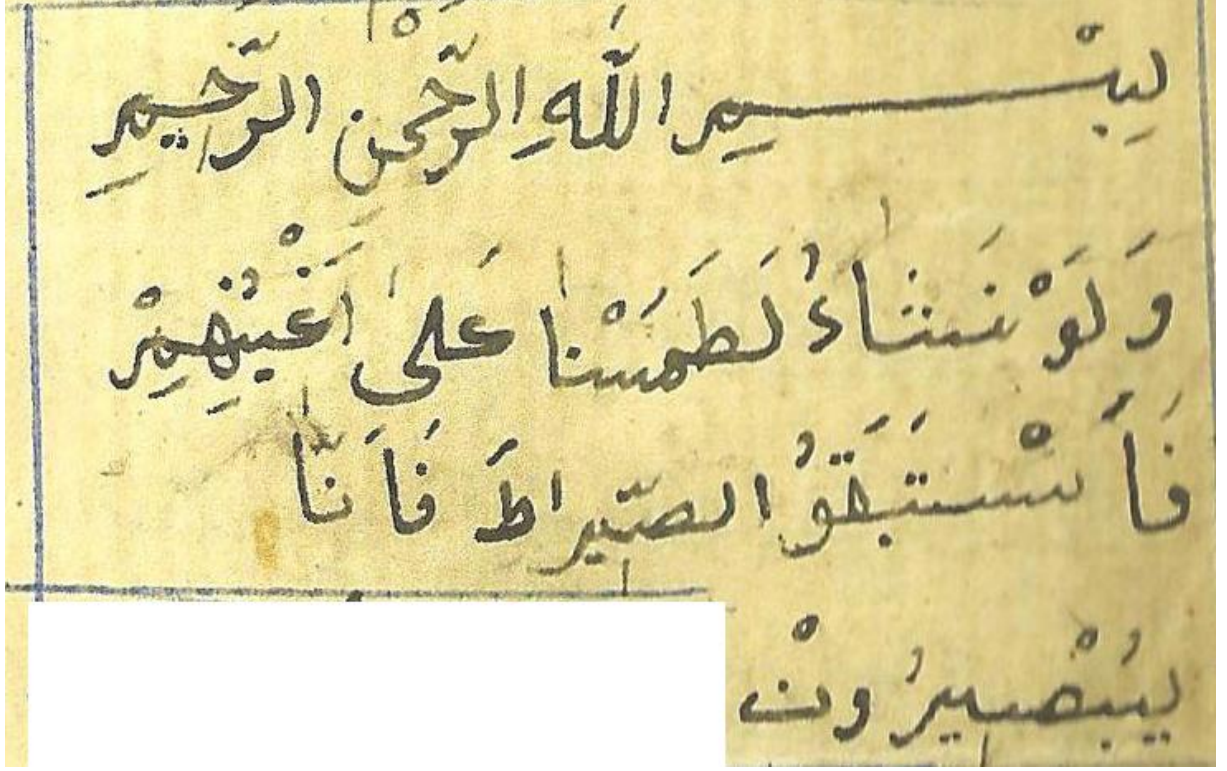 بِسْــــمِ اللَّهِ الرَّحْمٰنِ الرَّحِيمِ
وَلَوْ نَشَاءُ لَطَمَسْنَا عَلىٰ اَعْيُنِهِمْ
فَاَسْتَبَقُوُ الصِّرَاطَ فَاَنَّا
يُبْصِيرُونْ